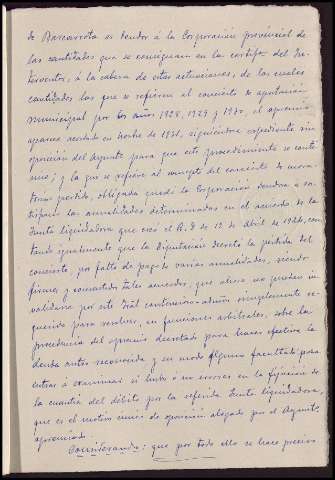 de Barcarrota es deudor á la Corporación provincial de
las cantidades que se consignan en la certifn. del In-
terventor, á la cabeza de estas actuaciones, de las cuales
cantidades las que se refieren al concierto de aportación
municipal por los años 1928, 1929 y 1930, el apremio
aparece acordado en Novbre de 1931, siguiéndose expediente sin
oposición del Ayunto para que este procedimiento se conti-
nue; y la que se refiere al concepto del concierto de mora-
torias perdido, obligada quedó la Corporación deudora a sa-
tisfacer las anualidades determinadas en el acuerdo de la
Junta liquidadora que creó el R. D. de 12 de Abril de 1924, cons-
tando igualmente que la Diputación decretó la pérdida del
concierto, por falta de pago de varias anualidades, siendo
firmes, y consentidos tales acuerdos, que ahora no pueden in-
validarse por este Tral contencioso-admvo simplemente re-
querido para resolver, en funciones arbitrales, sobre la
procedencia del apremio decretado para hacer efectiva la
deuda antes reconocida y en modo alguno facultado para
entrar á examinar si hubo ó no errores en la fijación de
la cuantía del débito por la referida Junta liquidadora,
que es el motivo único de oposición alegado por el Ayunto
apremiado.
Considerando: que por todo ello se hace preciso